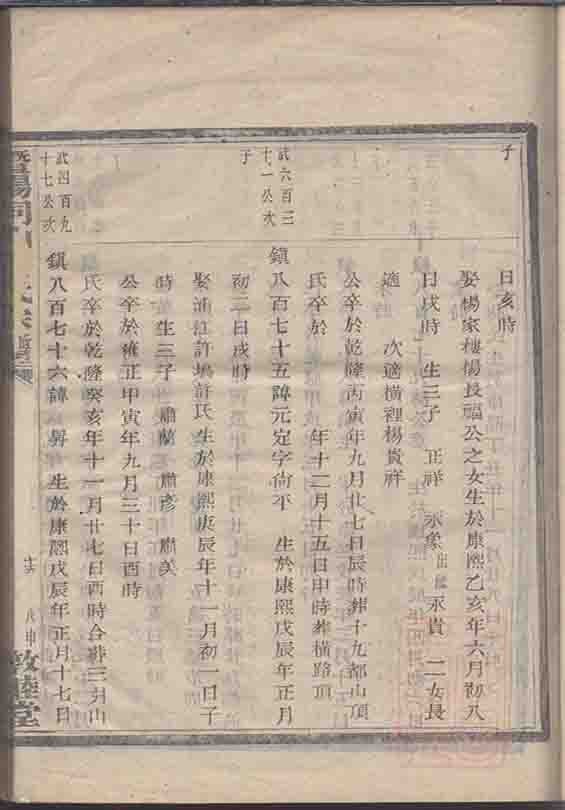 子
日亥時
娶楊家樓楊長福公之女生於康熙乙亥年六月初八
日戌時 生三子 正祥 永象出繼 永貴 二女長
適 次適橫裡楊貴祥
公卒於乾隆丙寅年九月廿七日辰時葬十九都山頂
氏卒於 年十二月十五日申時葬橫路頂
武六百三
十一公次
子
鎮八百七十五諱元定字尙平 生於康熙戊辰年正月
初三日戌時
娶浦江許塢許氏 生於康熙庚辰年十一月初一日子
時 生三子 肅蘭 肅彥 肅美
公卒於雍正甲寅年九月三十日酉時
氏卒於乾隆癸亥年十一月廿七日酉時合葬三分山
武四百九
十七公次
鎮八百七十六諱 生於康熙戊辰年正月十七日
暨陽
敦睦堂